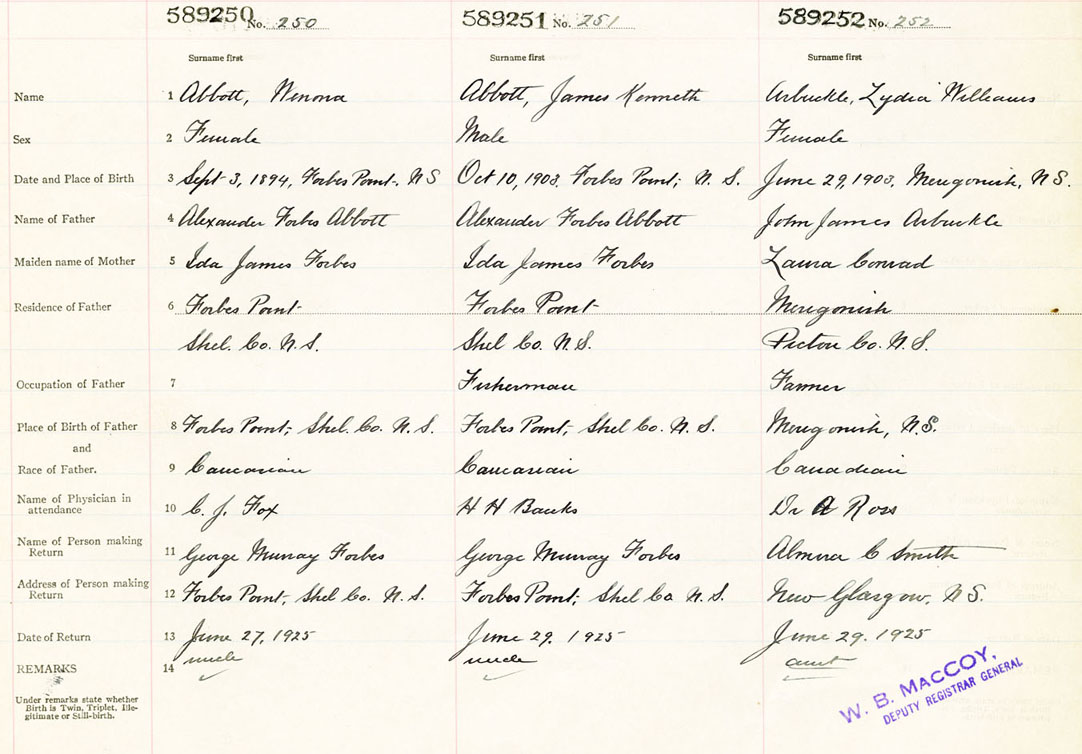 589250 No. 250 589251 No. 251 589252 No. 252
Surname first Surname first Surname first
Name 1 Abbott, Winona Abbott, James Kenneth Arbuckle, Lydia Williams
Sex 2 Female Male Female
Date and Place of Birth 3 Sept 3, 1894, Forbes Point, NS Oct 10, 1903. Forbes Point; N. S. June 29, 1903, Merigonish, N S.
Name of Father 4 Alexander Forbes Abbott Alexander Forbes Abbott John James Arbuckle
Maiden name of Mother 5 Ida James Forbes Ida James Forbes Laura Conrad
Residence of Father 6 Forbes Point Forbes Point Merigonish
Shel. Co. N.S. Shel Co. N.S. Pictou Co. N.S.
Occupation of Father 7 Fisherman Farmer
Place of Birth of Father 8 Forbes Point; Shel. Co. N. S. Forbes Point; Shel Co. N. S. Merigonish, N.S.
and
Race of Father. 9 Caucasian Caucasian Canadian
Name of Physician in
attendance 10 C. J. Fox H H Banks Dr A Ross
Name of Person making
Return 11 George Murray Forbes George Murray Forbes Almira C Smith
Address of Person making
Return 12 Forbes Point, Shel Co. N. S. Forbes Point; Shel Co N. S. New Glasgow, N S.
Date of Return 13 June 27, 1925 June 29. 1925 June 29. 1925
REMARKS 14 uncle uncle aunt
Under remarks state whether
Birth is Twin, Triplet, Ille-
gitimate or Still-birth.
W. B. MACCOY,
DEPUTY REGISTRAR GENERAL